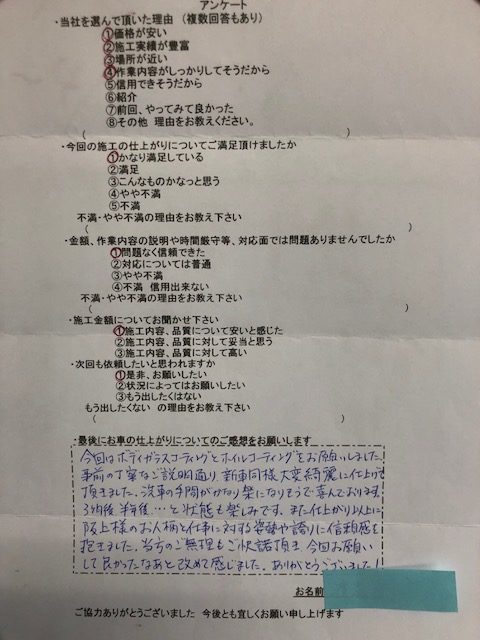 アンケート
・当社を選んで頂いた理由　（複数回答もあり）
①価格が安い
②施工実績が豊富
③場所が近い
④作業内容がしっかりしてそうだから
⑤信用できそうだから
⑥紹介
⑦前回、やってみて良かった
⑧その他　理由をお教えください。
(　)
・今回の施工の仕上がりについてご満足頂けましたか
①かなり満足している
②満足
③こんなものかなっと思う
④やや不満
⑤不満
不満・やや不満の理由をお教え下さい
(　)
・金額、作業内容の説明や時間厳守等、対応面では問題ありませんでしたか
①問題なく信頼できた
②対応については普通
③やや不満
④不満　信用出来ない
不満・やや不満の理由をお教え下さい
(　)
・施工金額についてお聞かせ下さい
①施工内容、品質について安いと感じた
②施工内容、品質に対して妥当と思う
③施工内容、品質に対して高い
・次回も依頼したいと思われますか
①是非、お願いしたい
②状況によってはお願いしたい
③もう出したくはない
もう出したくない　の理由をお教え下さい
(　)
・最後にお車の仕上がりについてのご感想をお願いします
今回はボディガラスコーティングとホイルコーティングをお願いしました。
事前の丁寧なご説明通り、新車同様大変綺麗に仕上げて
頂きました。洗車の手間がかなり楽になりそうで喜んでおります。
3ヶ月後、半年後…と状態も楽しみです。また仕上がり以上に
阪上様のお人柄と仕事に対する姿勢や誇りに信頼感を
抱きました。当方のご無理もご快諾頂き、今回お願い
して良かったなあと改めて感じました。ありがとうございました！
お名前
ご協力ありがとうございました　今後とも宜しくお願い申し上げます